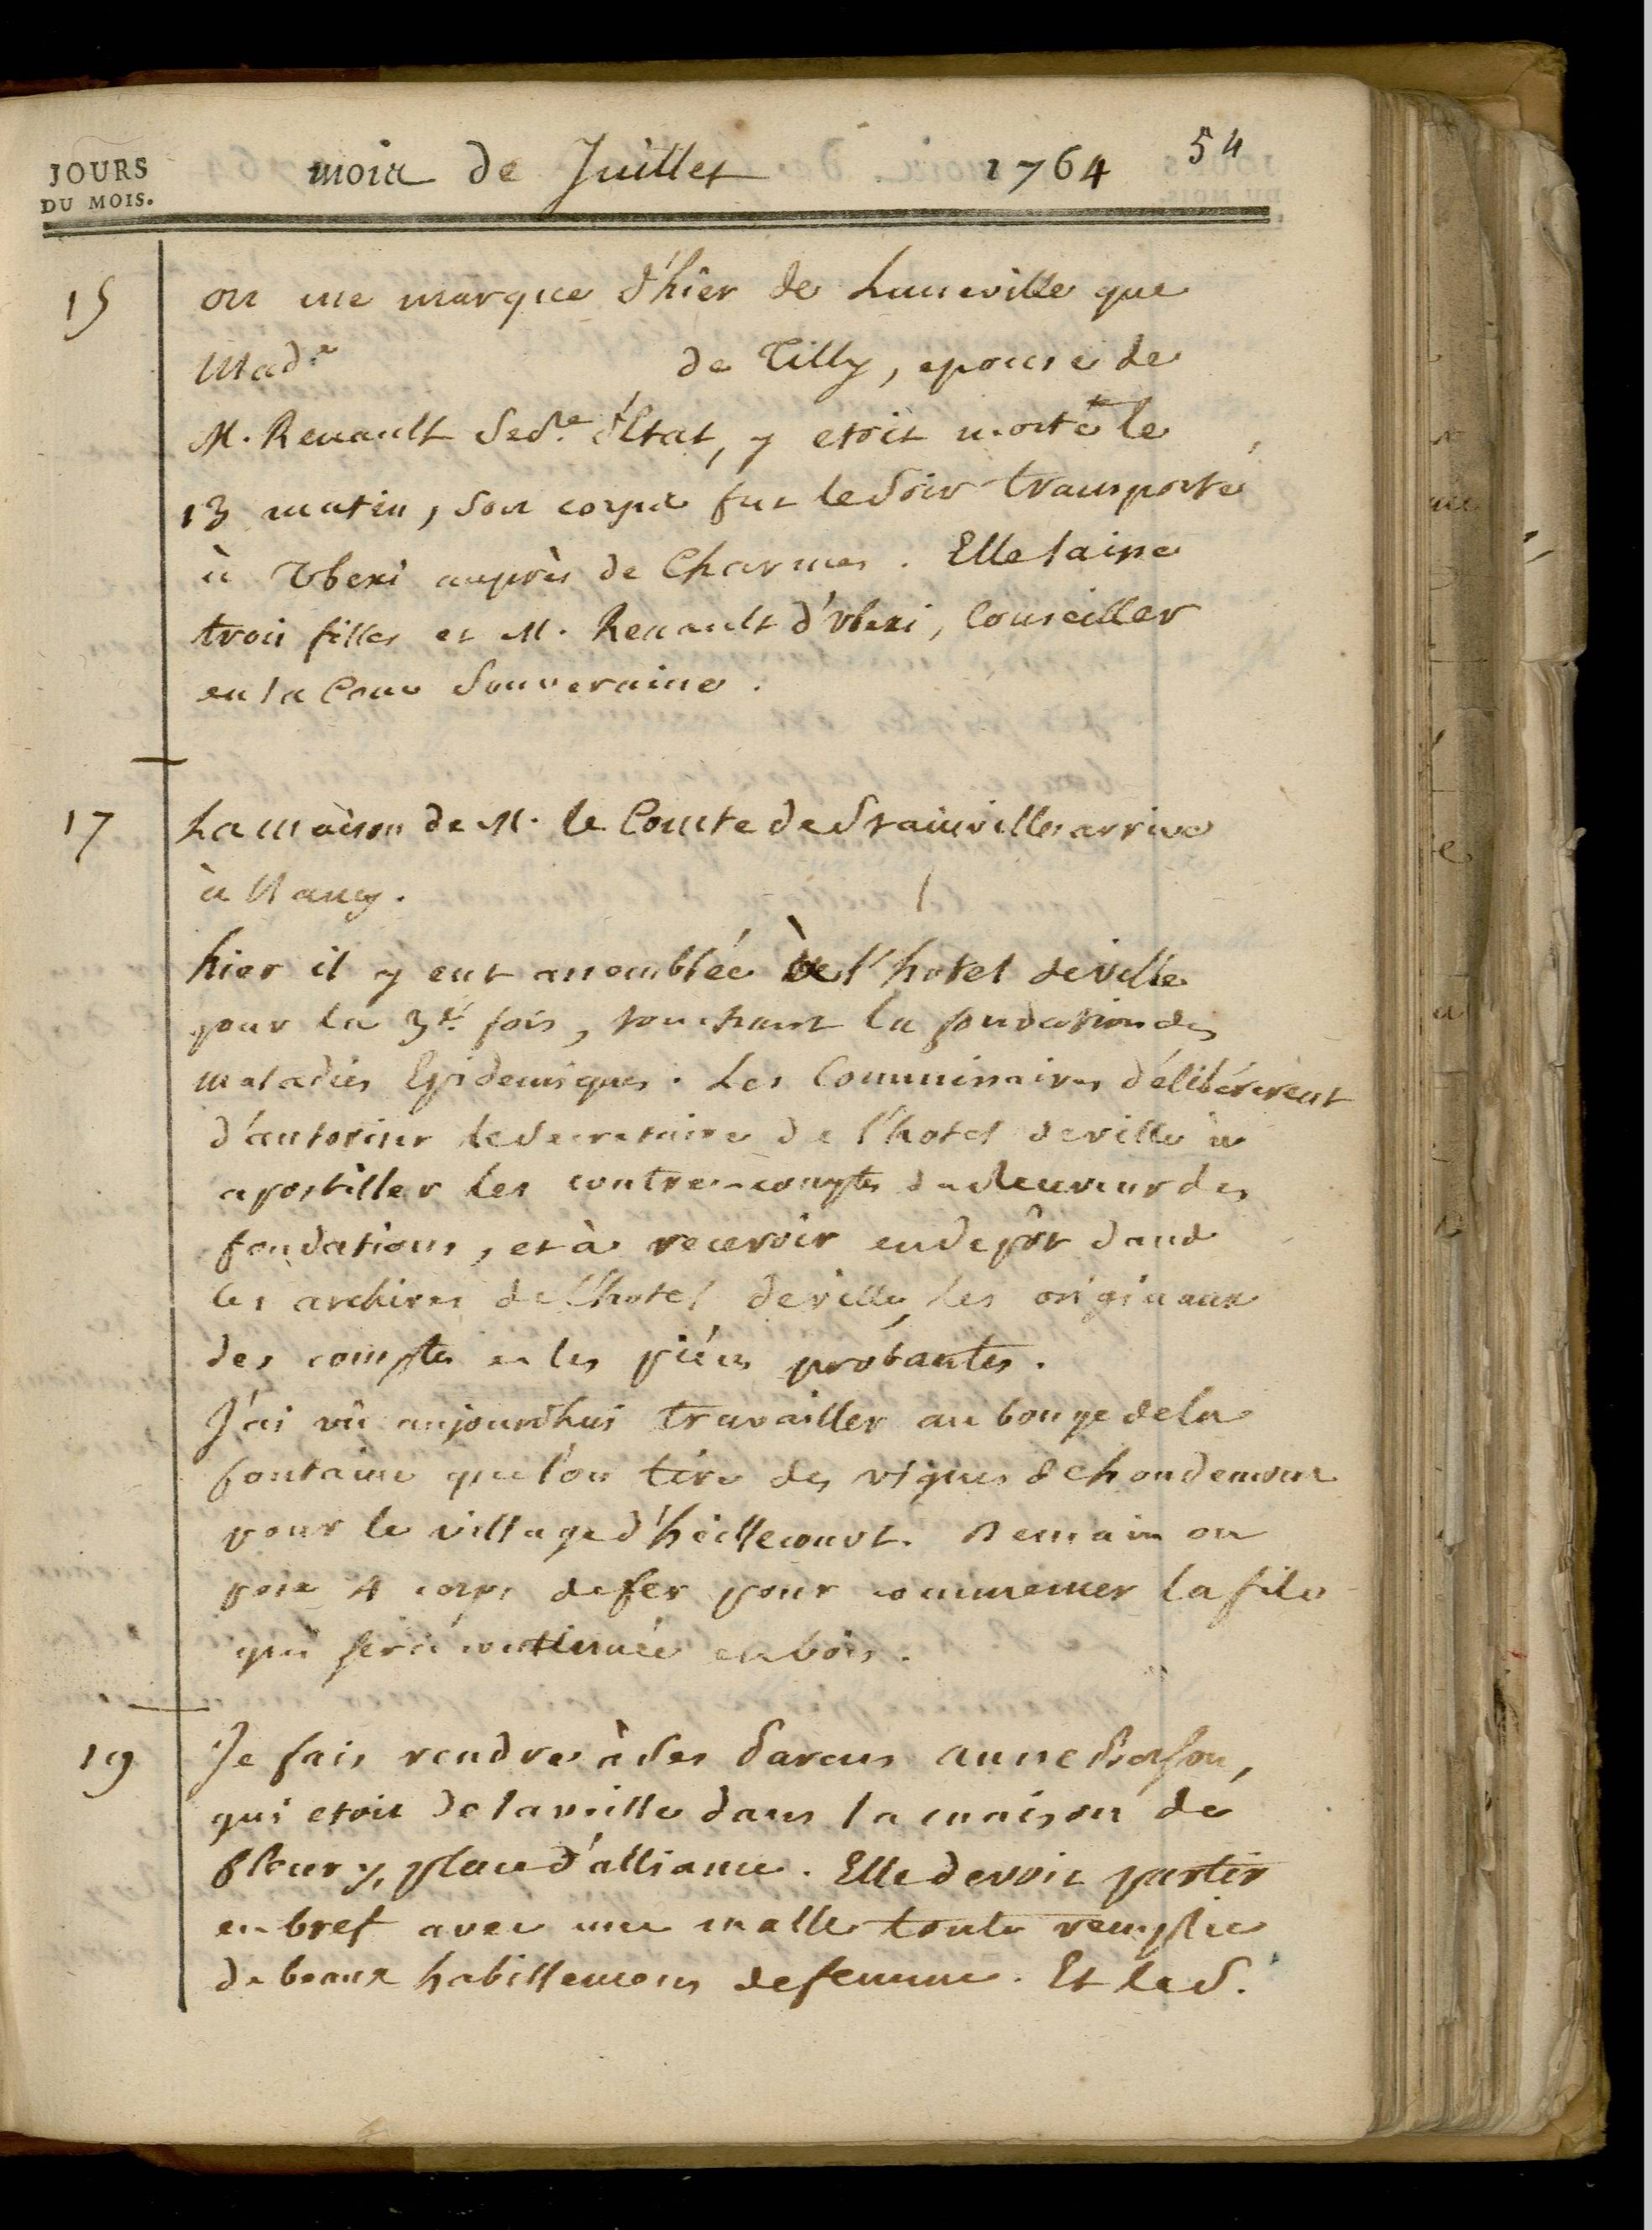 54
JOURS
DU MOIS.
mois de Juillet 1764
15
on me marque d'hier de Luneville que
Made de Tilly, epouse de
M. Renault Secre. d'Etat, y etoit morte le
13 matin, son corps fut le soir transporté
à Vbexi auprès de Charmes. Elle laisse
trois filles et M. Renault d'Vbexi, Conseiller
en la Cour Souveraine.
17
La maison de M. le Comte de Stainville arrive
à Nancy.
hier il y eut assemblée à l'hotel de ville
pour la 3e. fois, touchant la fondation des
maladies Epidemiques. Les Commissaires délibérerent
d'autoriser le secretaire de l'hotel de ville à
apostiller les contre-comptes du receveur des
fondations, et à recevoir en depôt dans
les archives de l'hotel de ville, les originaux
des comptes et les piéces probantes.
J'ai vû aujourdhui travailler au bouge de la
fontaine que l'on tire des vignes de houdemont
pour le village d'heillecourt. Demain on
pose 4 corps de fer pour commencer la file
qui sera continuée en bois.
19
Je fais rendre à ses parens anne
qui etoit de la veille dans la maison de
fleury, place d'alliance. Elle devoit partir
en bref avec une malle toute remplie
de beaux habillemens de femme. Et le S.